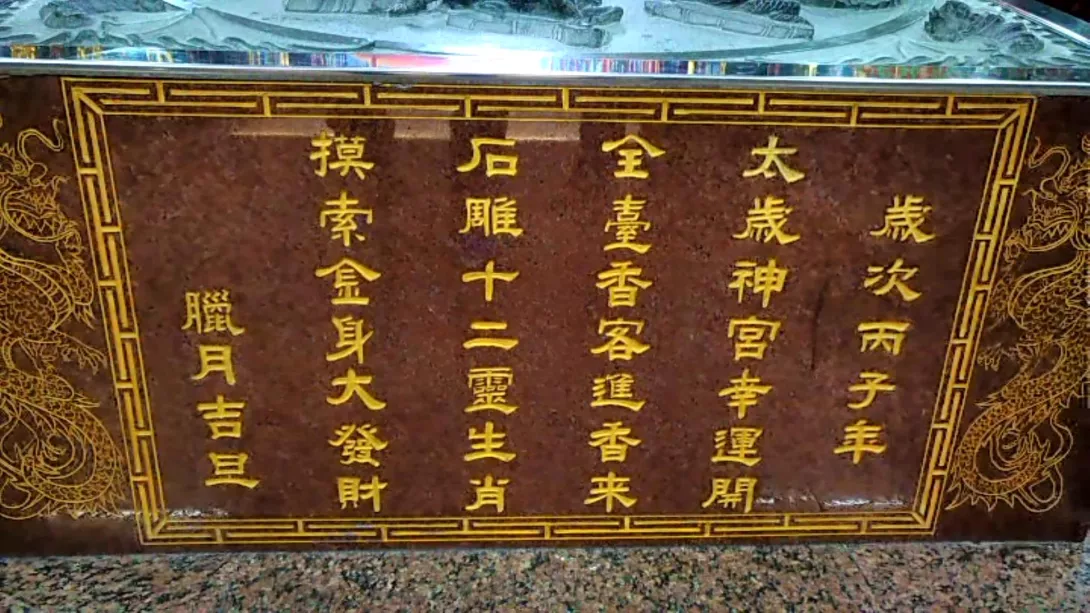 歲次丙子年
太歲神宮幸運開
全臺香客進香来
石雕十二靈生肖
摸索金身大發財
臘月吉旦